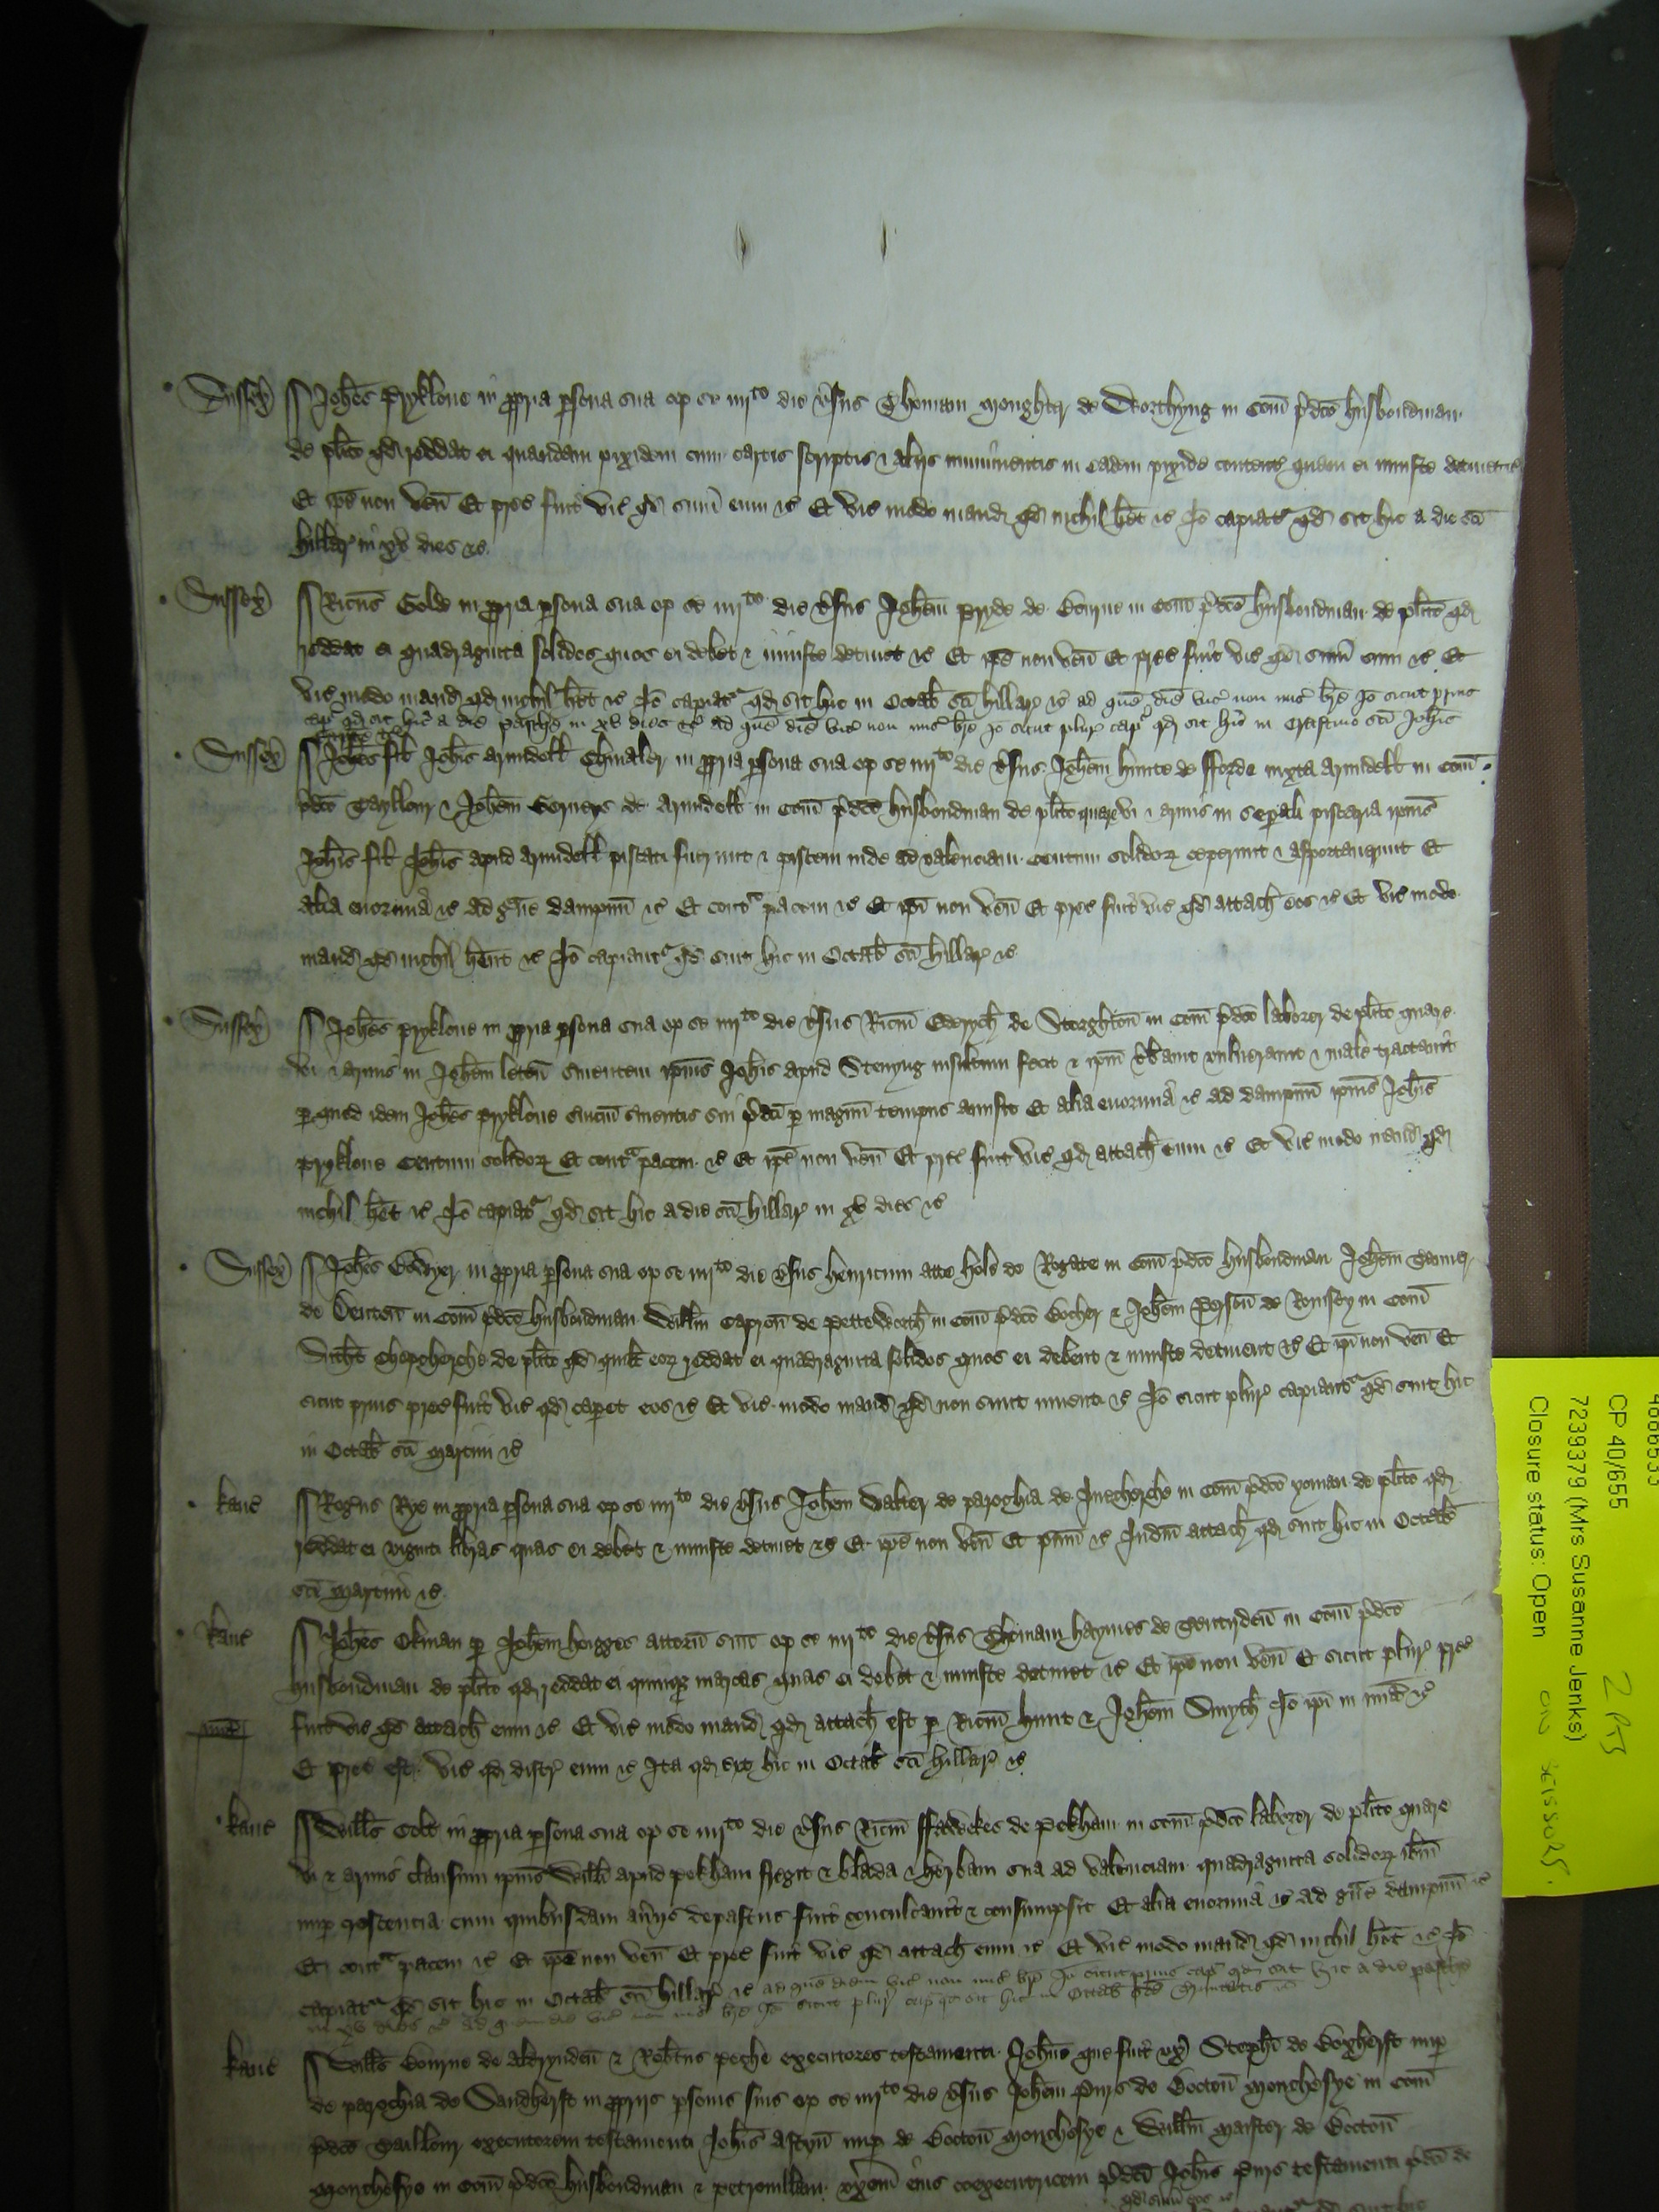 Sussex Joh̄es Pryklone in ꝓpria ꝑsona sua op se iiijto die v̉sus Thomam Monghter de Worthyng in Com̄ p̉dc̄o husbondman
de pl̄ito qd̄ reddat ei quandam pixidem cum cartis scriptis & alijs munimentis in eadem pixide content̄ quam ei iniuste detinet &c̄
Et ip̄e non ven̄ Et prec̄ fuit vic̄ qd̄ sum̄ eum &c̄ Et vic̄ modo mand̄ qd̄ nichil h̄et &c̄ Iō capiatr qd̄ sit hic a die sc̄i
Hillar̄ in xv dies &c̄
Sussex Ric̄us Golde in ꝓpria ꝑsona sua op se iiijto die v̉sus Joh̄em Pryde de Bourne in Com̄ p̉dc̄o husbondman de pl̄ito qd̄
reddat ei quadraginta solidos quos ei debet & iniuste detinet &c̄ Et ip̄e non ven̄ Et prec̄ fuit vic̄ qd̄ sum̄ eum &c̄ Et
vic̄ modo mand̄ qd̄ nichil h̄et &c̄ Iō capiatr qd̄ sit hic in Octab̄ sc̄i Hillar̄ &c̄ ad quē diē vic̄ non mis̄ br̄e Iō sicut prius
capr qd̄ sit hic a die Pasche in xv dies &c̄ ad quē diē vic̄ non mis̄ br̄e Iō sicut plur̄ capr qd̄ sit hic in Crastino sc̄i Joh̄is
Sussex Joh̄es fil̄ Joh̄is Arundell Chiualer in ꝓpria ꝑsona sua op se iiijto die v̉sus Joh̄em Hunte de Fforde iuxta Arundell in Com̄
p̉dc̄o Tayllour & Joh̄em Corneys de Arundell in Com̄ p̉dc̄o husbondman de pl̄ito quare vi & armis in seꝑali piscaria ip̄ius
Joh̄is fil̄ Joh̄is apud Arundell piscati fuerunt & piscem inde ad valenciam Centum solidoꝝ ceperunt & asportauerunt Et
alia enormia &c̄ ad graue dampnū &c̄ Et contra pacem &c̄ Et ip̄i non ven̄ Et prec̄ fuit vic̄ qd̄ attach̄ eos &c̄ Et vic̄ modo
mand̄ qd̄ nichil h̄ent &c̄ Iō capiantr qd̄ sint hic in Octab̄ sc̄i Hillar̄ &c̄
Sussex Joh̄es Pryklone in ꝓpria ꝑsona sua op se iiijto die v̉sus Ric̄m Ederych̄ de Storghton̄ in Com̄ p̉dc̄o laborer de pl̄ito quare
vi & armis in Joh̄em Leten̄ seruientem ip̄ius Joh̄is apud Stenyng insultum fecit & ip̄m v̉bauit vulnerauit & male tractauit
ꝑ quod idem Joh̄es Pryklone seruiciū seruientis sui p̉dc̄i ꝑ magnū tempus amisit Et alia enormia &c̄ ad dampnū ip̄ius Joh̄is
Pryklone Centum solidoꝝ Et contra pacem &c̄ Et ip̄e non ven̄ Et prec̄ fuit vic̄ qd̄ attach̄ eum &c̄ Et vic̄ modo mand̄ qd̄
nichil h̄et &c̄ Iō capiatr qd̄ sit hic a die sc̄i Hillar̄ in xv dies &c̄
Sussex Joh̄es Bowyer in ꝓpria ꝑsona sua op se iiijto die v̉sus Henricum atte Hole de Rogate in Com̄ p̉dc̄o husbondman Joh̄em
de Denton̄ in Com̄ p̉dc̄o husbondman Will̄m Capron̄ de Petteworth̄ in Com̄ p̉dc̄o Bocher & Joh̄em Person̄ de Romsey in Com̄
Suht̄ Chepcherche de pl̄ito qd̄ quil̄t eoꝝ reddat ei quadraginta solidos quos ei debent & iniuste detinent &c̄ Et ip̄i non ven̄ Et
sicut prius prec̄ fuit vic̄ qd̄ caperet eos &c̄ Et vic̄ modo mand̄ qd̄ non sunt inuenti &c̄ Iō sicut plur̄ capiantr qd̄ sint hic
in Octab̄ sc̄i Martini &c̄
Kanc̄ Rog̉us Rye in ꝓpria ꝑsona sua op se iiijto die v̉sus Joh̄em Walter de parochia de Iuecherche in Com̄ p̉dc̄o yoman de pl̄ito qd̄
reddat ei viginti libras quas ei debet & iniuste detinet &c̄ Et ip̄e non ven̄ Et sum̄ &c̄ Iudm̄ attach̄ qd̄ sit hic in Octab̄
sc̄i Martini &c̄
Kanc̄ Joh̄es Okman ꝑ Joh̄em Hogges attorn̄ suū op se iiijto die v̉sus Thomam Haymes de Tentrden̄ in Com̄ p̉dc̄o
husbondman de pl̄ito qd̄ reddat ei quinqꝫ marcas quas ei debet & iniuste detinet &c̄ Et ip̄e non ven̄ Et sicut plur̄ prec̄
fuit vic̄ qd̄ attach̄ eum &c̄ Et vic̄ modo mand̄ qd̄ attach̄ est ꝑ Ric̄m Hunt & Joh̄em Smyth̄ Iō ip̄i in mīa &c̄
Et prec̄ est vic̄ qd̄ distr̄ eum &c̄ Ita qd̄ sit hic in Octab̄ sc̄i Hillar̄ &c̄
Kanc̄ Will̄s Colt in ꝓpria ꝑsona sua op se iiijto die v̉sus Ric̄m Ffawkes de Pekham in Com̄ p̉dc̄o laborer de pl̄ito quare
vi & armis clausum ip̄ius Will̄i apud Pekham fregit & blada & herbam sua ad valenciam quadraginta solidoꝝ ib̄m
nuꝑ crescencia cum quibusdam aủijs depastus fuit conculcauit & consumpsit Et alia enormia &c̄ ad graue dampnū &c̄
Et contra pacem &c̄ Et ip̄e non ven̄ Et prec̄ fuit vic̄ qd̄ attach̄ eum &c̄ Et vic̄ modo mand̄ qd̄ nichil h̄et &c̄ Iō
capiatr qd̄ sit hic in Octab̄ sc̄i Hillar̄ &c̄ ad quē diem vic̄ non mis̄ br̄e Iō sicut prius capr qd̄ sit hic a die Pasche
in xv dies &c̄ ad quem diē vic̄ non mis̄ br̄e Iō sicut plur̄ capr qd̄ sit hic in Octab̄ sc̄e Trinitatis
Kanc̄ Will̄s Bourne de Aldrynden̄ & Rob̄tus Peche executores testamenti Joh̄ne que fuit vx̄ Steph̄i de Boxherst nuꝑ
de parochia de Sandherst in ꝓprijs ꝑsonis suis op se iiijto die v̉sus Joh̄em Purs de Bocton̄ Monchesye in Com̄
p̉dc̄o Taillour executorem testamenti Joh̄is Astyn̄ nuꝑ de Bocton̄ Monchesye & Will̄m Marster de Bocton̄
Monchesye in Com̄ p̉dc̄o husbondman & Petronillam vx̄em eius coexecutricem p̉dc̄i Joh̄is Purs testamenti p̉dc̄i de
CP 40/655
7239379 (Mrs Susanne Jenks)
Closure status: Open